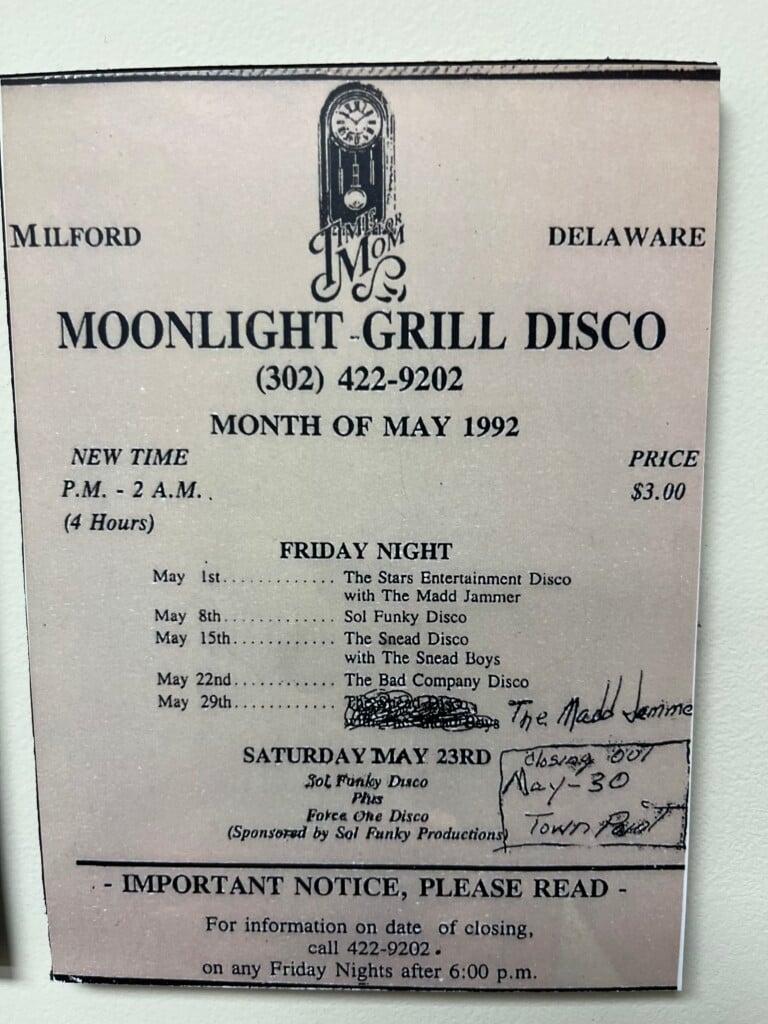 TIME FOR
MOM
MILFORD DELAWARE
MOONLIGHT - GRILL DISCO
(302) 422-9202
MONTH OF MAY 1992
NEW TIME PRICE
P.M. - 2 A.M. $3.00
(4 Hours)
FRIDAY NIGHT
May 1st............. The Stars Entertainment Disco
with The Madd Jammer
May 8th............. Sol Funky Disco
May 15th............ The Snead Disco
with The Snead Boys
May 22nd............ The Bad Company Disco
May 29th............ The Madd Jamme
SATURDAY MAY 23RD
Sol Funky Disco
Plus
Force One Disco
(Sponsored by Sol Funky Productions)
Closing out
May-30
Town
- IMPORTANT NOTICE, PLEASE READ -
For information on date of closing,
call 422-9202.
on any Friday Nights after 6:00 p.m.